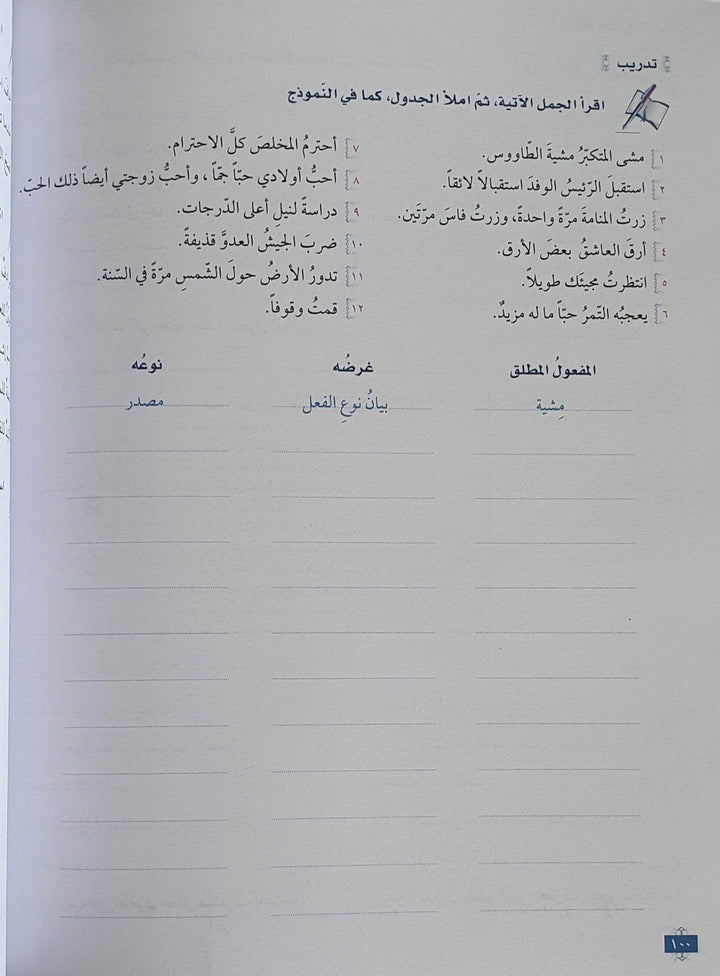 تدريب
اقرأ الجمل الآتية، ثمّ املأ الجدول، كما في النّموذج
١ مشى المتكبّرُ مشيةَ الطّاووس.
٢ استقبلَ الرّئيسُ الوفدَ استقبالاً لائقاً.
٣ زرتُ المنامةَ مرّةً واحدةً، وزرتُ فاسَ مرّتَين.
٤ أرقَ العاشقُ بعضَ الأرق.
٥ انتظرتُ مجيئَك طويلاً.
٦ يعجبُه التّمرُ حبّاً ما له مزيدٌ.
٧ أحترمُ المخلصَ كلَّ الاحترام.
٨ أحبُّ أولادي حبّاً جمّاً، وأحبُّ زوجتي أيضاً ذلك الحبّ.
٩ دراسةً لنيلِ أعلى الدّرجات.
١٠ ضربَ الجيشُ العدوَّ قذيفةً.
١١ تدورُ الأرضُ حولَ الشّمسِ مرّةً في السّنة.
١٢ قمتُ وقوفاً.
المفعولُ المطلق غرضُه نوعُه
مِشية بيانُ نوعِ الفعل مصدر
١٠٠